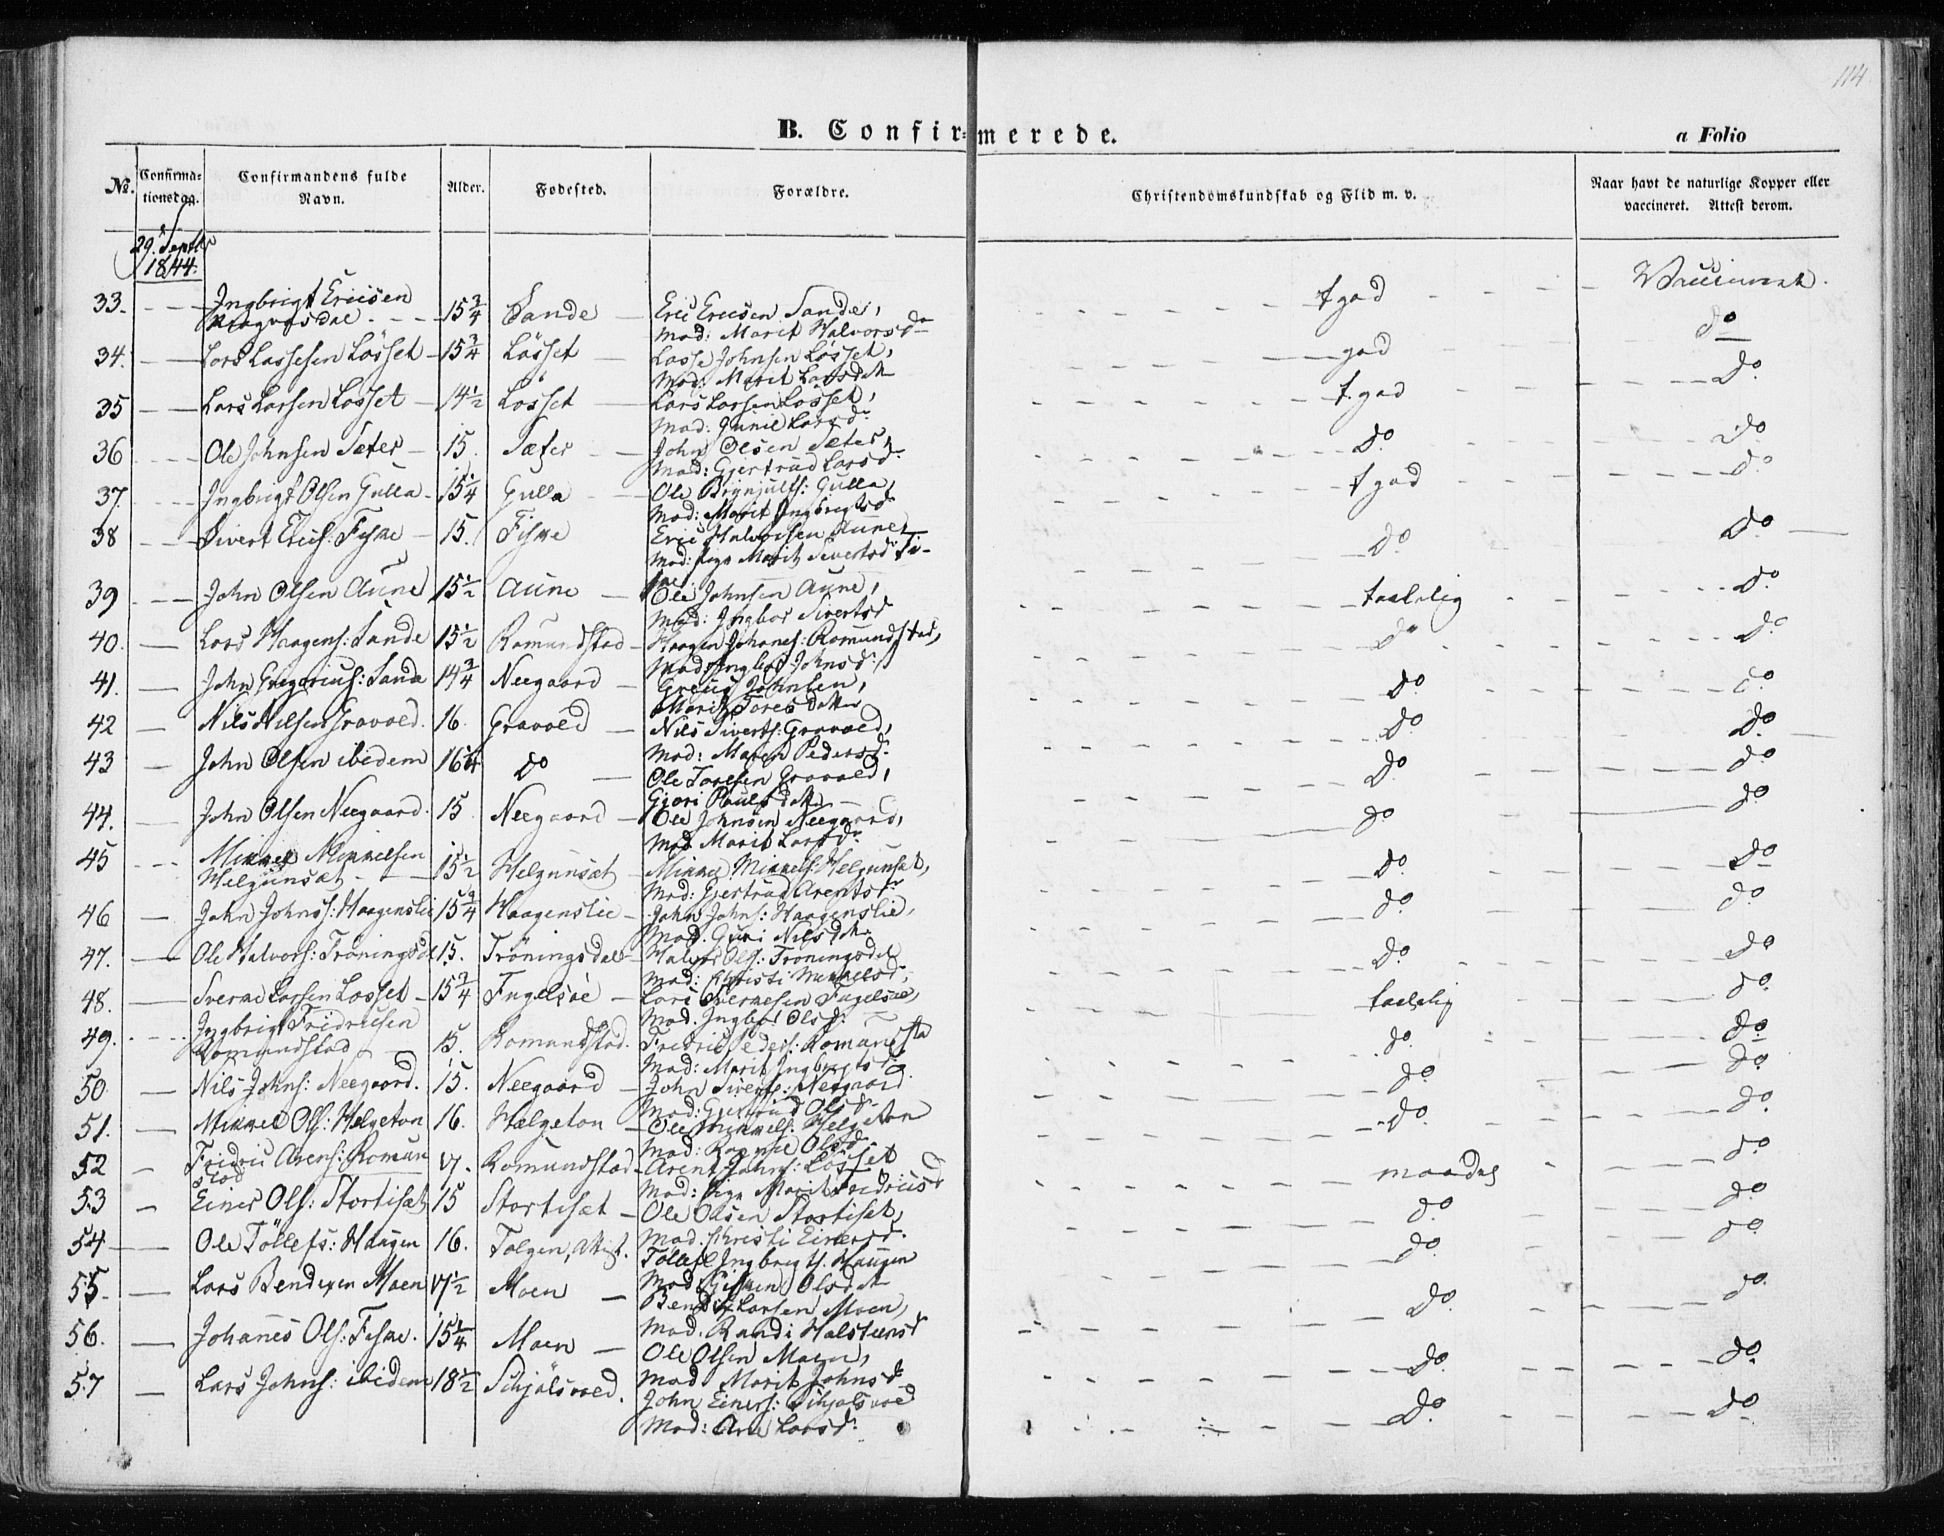 114
B. Confirmerede.
a Folio
No. Confirmationsdag. Confirmandens fulde Navn. Alder. Fødested. Forældre. Christendomskundskab og Flid m. v. Naar havt de naturlige Kopper eller vaccineret. Attest derom.
29. Septbr 1844:
33. Ingbrigt Ericsen 15 3/4 Sande Eric Ericsen Sande, Mod: Marit Halvorsdr tgod Vaccineret.
34. Lars Lassesen Lösset 15 3/4 Lösset Lasse Johnsen Lösset, Mod: Marit Larsdttr god do
35 Lars Larsen Lösset 14 1/2 Lösset Lars Larsen Lösset, Mod: Gunil Larsdr t.god do.
36 Ole Johnsen Sæter 15. Sæter John Olsen Sæter, Mod: Gjertrud Larsdr do. do
37. Ingbrigt Olsen Gulla 15 1/4 Gulla Ole Brynjulfs: Gulla, Mod: Marit Ingbrigtsd tgod do
38 Sivert Erics: Fiske 15. Fiske Eric Halvorsen Aune, Mod: Pige Marit Sivertsdr Fiske do. do.
39 John Olsen Aune 15 1/2 Aune Ole Johnsen Aune, Mod: Ingbor Sivertsd taalelig do
40. Lars Haagens: Sande 15 1/2 Romundstad Haagen Johanes: Romundstad, Mod Ingbor Johnsd: do do
41. John Gregoriuss: Sande 14 3/4 Neegaard Greius Johnsen, Marit Toresdatter do do
42 Nils Nilsen Gravoed. 16. Gravoed Nils Siverts: Gravoed, Mod: Maren Pedersdr do. do.
43 John Olsen ibedem 16 1/4 do Ole Toresen Gravoed, Gjöri Paulsdatter do. do
44. John Olsen Neegaard. 15 Neegaard Ole Johnsen Neegaard, Mod Marit Larsdr do do
45 Mikkel Mikkelsen Helgunsæt 15 1/2 Helgunsæt Mikkel Mikkels: Helgunsæt, Mod: Gjertrud Arentsdr do. do
46 John Johns: Haagenslie 15 3/4 Haagenslie John Johns: Haagenslie, Mod. Guri Nilsdtr do. do
47. Ole Halvors: Tröningsdal 15. Tröningsdal Halvor Ols: Tröningsdal Mod: Christi Mikkelsd. do. do
48. Sverke Larsen Lösset 15 3/4 Fugelsöe Lars Sverkesen Fugelsöe, Mod. Ingbor Olsd: taalelig do.
49. Ingbrigt Fridricsen Romundstad 15. Romundstad. Fredric Peders: Romundsta Mod: Marit Ingbrigtsd. do. do
50 Nils Johns: Neegaard. 15. Neegaard John Siverts: Neegaard Mod: Gjertrud Olsdr do. do
51. Mikkel Ols: Helgeton 16. Helgeton Ole Mikkels: Helgeton Mod: Olsdr do. do.
52 Fridric Arens: Romunstad 17. Romundstad Arent Johns: Lösset Mod: Pige Marit Fredricsd maadel do
53 Einer Ols: Stortisæt 15 Stortisæt Ole Olsen Stortisæt, Mod: Christi Einersd. do. do
54 Ole Töllefs: Haugen 16. Tolgen, Attest. Töllef Ingbrigts. Haugen Mod Olsdtr do. do.
55. Lars Bendixen Moen 17 1/2 Moen Bendix Larsen Moen, Mod. Randi Halsteensd do. do.
56. Johanes Ols: Fiske. 15 1/4 Moen Ole Olsen Moen, Mod Marit Johnsd do. do.
57 Lars Johns: ibidem 18 1/2 Schjölsvoed. John Einers: Schjölsvoed Mod: Ane Larsdr do. do.